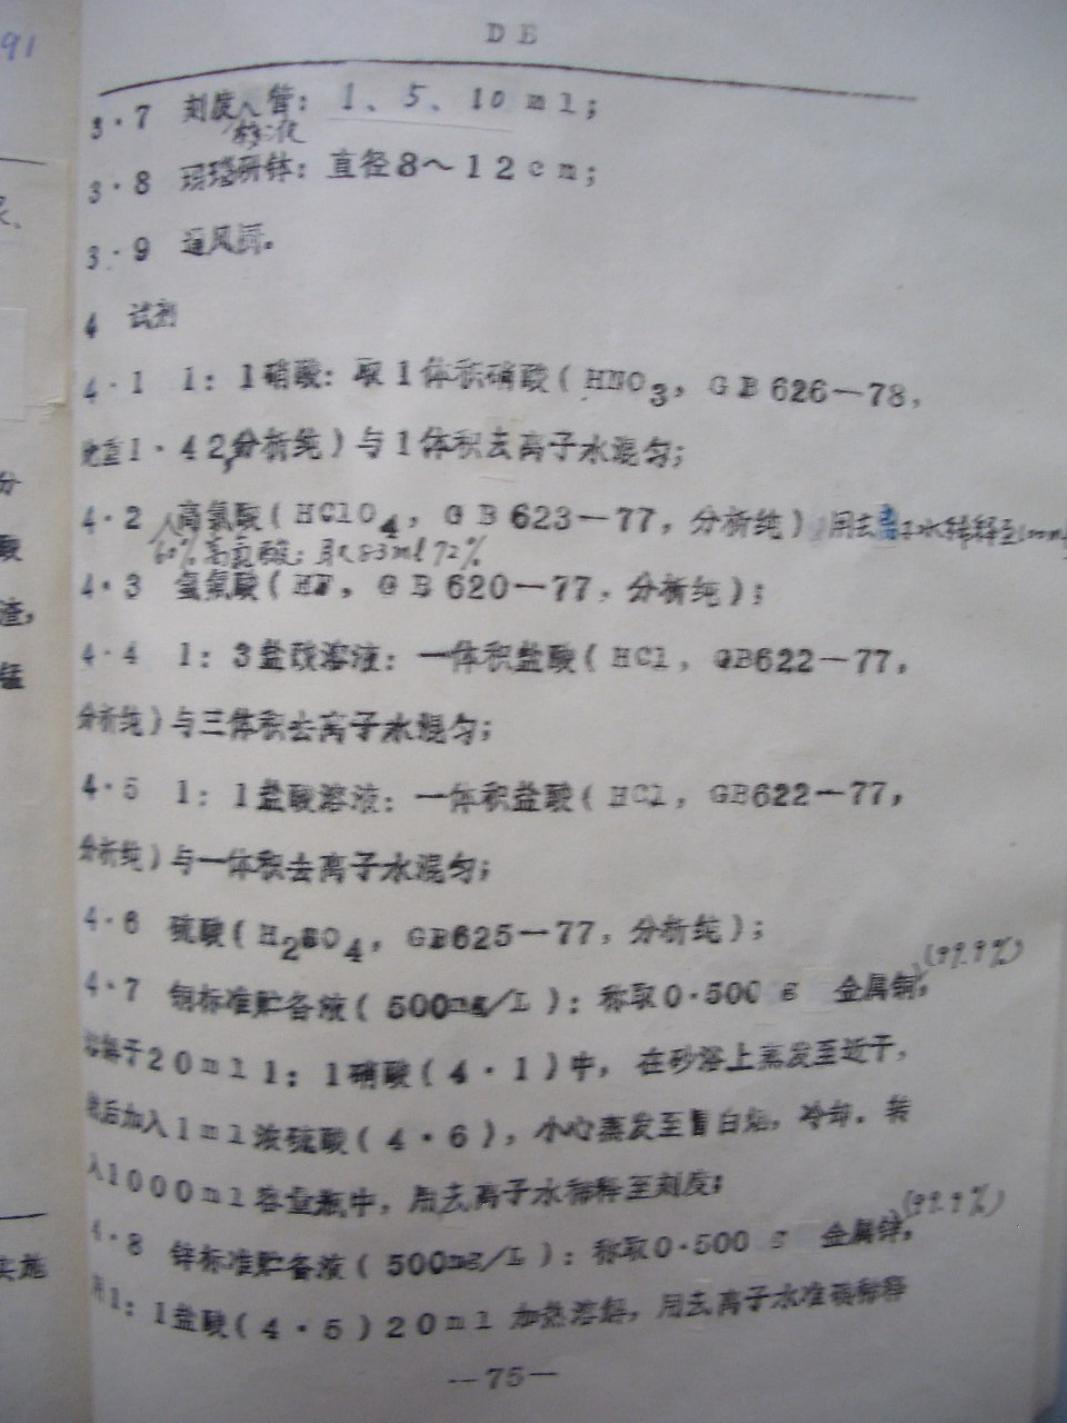 91
DE
3·7 刻度管: 1、5、10ml;
移液
3·8 玛瑙研钵: 直径8～12cm;
3·9 通风橱。
4 试剂
4·1 1: 1硝酸: 取1体积硝酸( HNO3, GB626—78,
比重1·42,分析纯)与1体积去离子水混匀;
4·2 高氯酸( HClO4, GB623—77, 分析纯) 用去离子水稀释至100ml
60%高氯酸: 取83ml 72%
4·3 氢氟酸( HF, GB620—77, 分析纯);
4·4 1: 3盐酸溶液: 一体积盐酸( HCl, GB622—77,
分析纯)与三体积去离子水混匀;
4·5 1: 1盐酸溶液: 一体积盐酸( HCl, GB622—77,
分析纯)与一体积去离子水混匀;
4·6 硫酸( H2SO4, GB625—77, 分析纯);
(99.9%)
4·7 铜标准贮备液( 500mg/L ): 称取0·500 g 金属铜,
溶解于20ml 1: 1硝酸( 4·1 )中, 在砂浴上蒸发至近干,
然后加入1ml浓硫酸( 4·6 ), 小心蒸发至冒白烟, 冷却. 转
入1000ml容量瓶中, 用去离子水稀释至刻度;
(99.9%)
4·8 锌标准贮备液( 500mg/L ): 称取0·500 g 金属锌,
用1: 1盐酸( 4·5 )20ml 加热溶解, 用去离子水准确稀释
—75—
分
酸
渣,
锰
实施